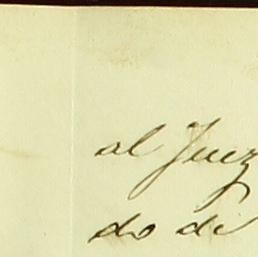 al Juez
do di